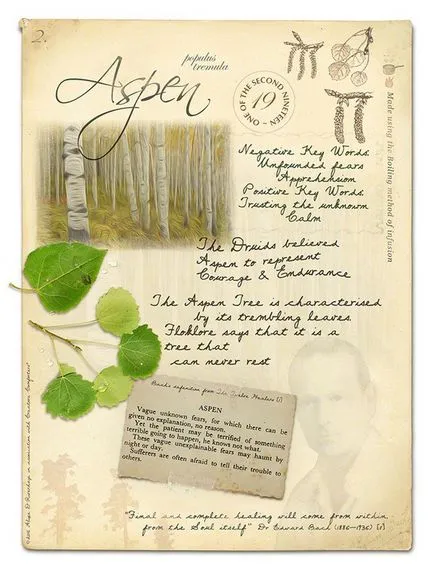 2.
populus
tremula
Aspen
ONE OF THE SECOND NINETEEN
19
Made using the Boiling method of infusion
Negative Key Words:
Unfounded fears
Apprehension
Positive Key Words:
Trusting the unknown
Calm
The Druids believed
Aspen to represent
Courage & Endurance
The Aspen Tree is characterised
by its trembling leaves
Floklore says that it is a
tree that
can never rest
Bachs definition from The Twelve Healers
ASPEN
Vague unknown fears, for which there can be
given no explanation, no reason.
Yet the patient may be terrified of something
terrible going to happen, he knows not what.
These vague unexplainable fears may haunt by
night or day.
Sufferers are often afraid to tell their trouble to
others.
"Final and complete healing will come from within,
from the Soul itself" Dr Edward Bach (1886-1936)